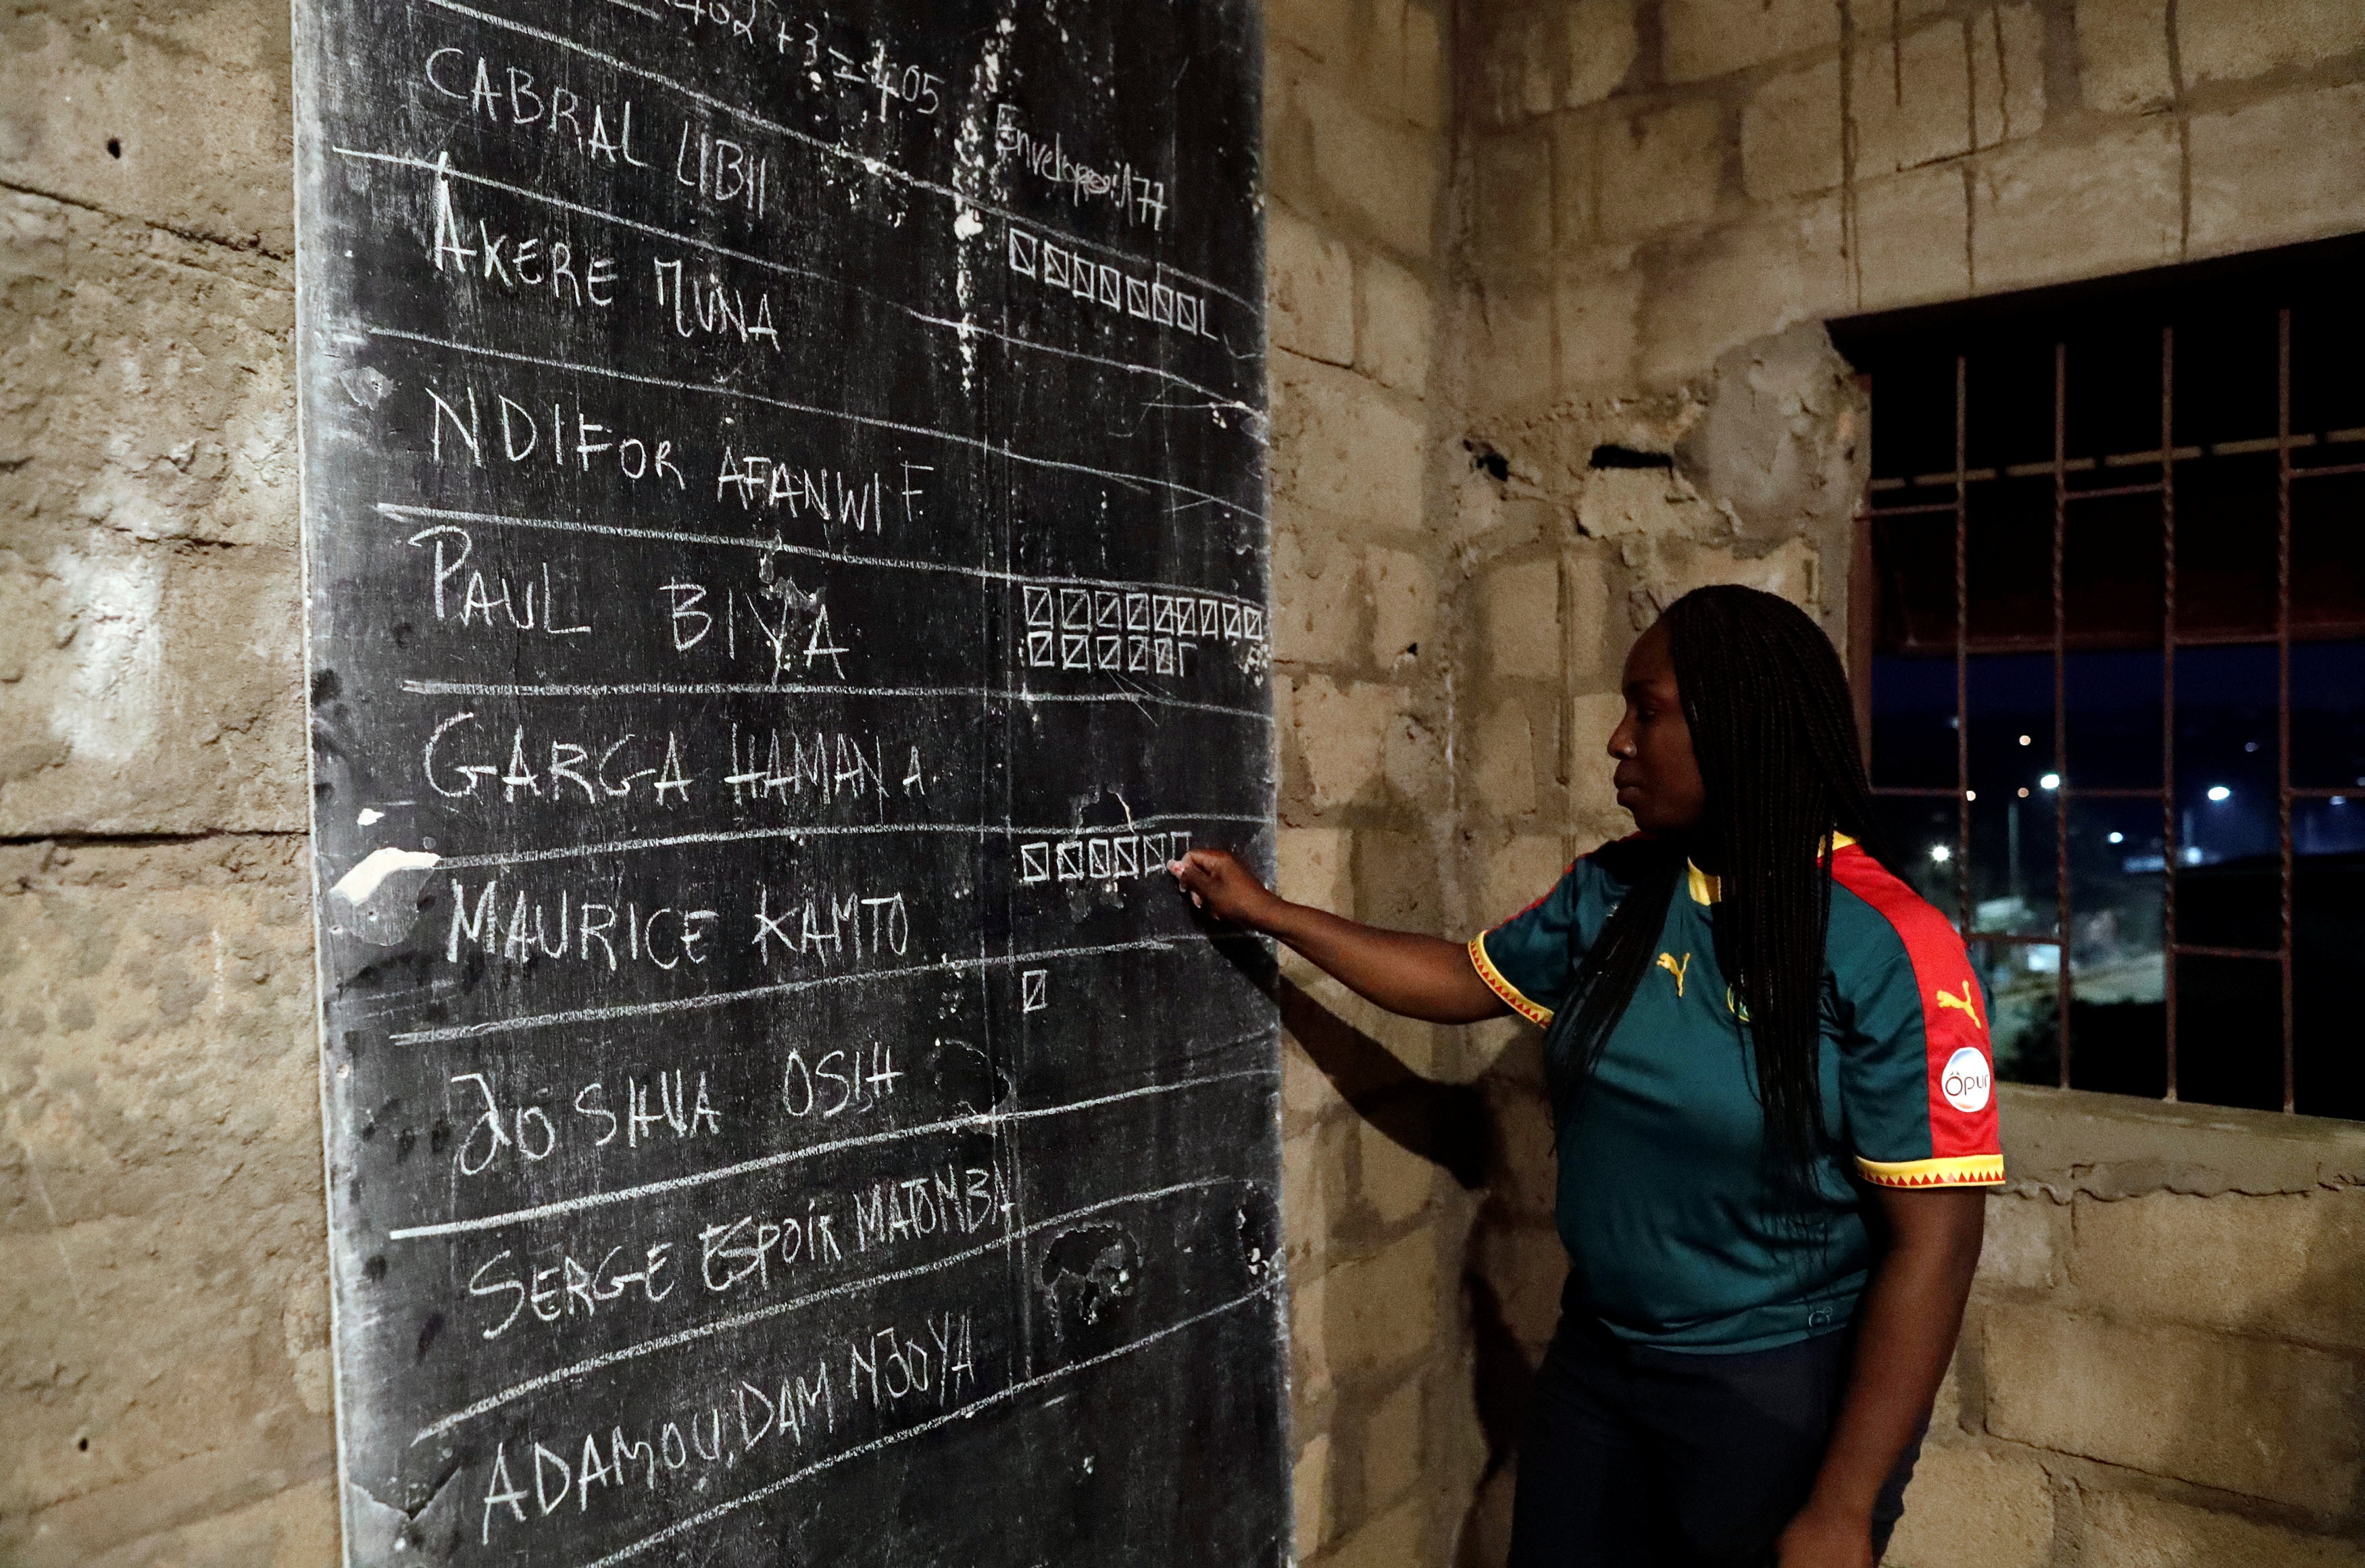 402 + 3 = 405
CABRAL LIBII
Enveloppe: 177
AKERE MUNA
NDIFOR AFANWI F.
PAUL BIYA
GARGA HAMAN A
MAURICE KAMTO
JOSHUA OSIH
SERGE ESPOIR MATOMBA
ADAMOU, DAM NJOYA
Öpur